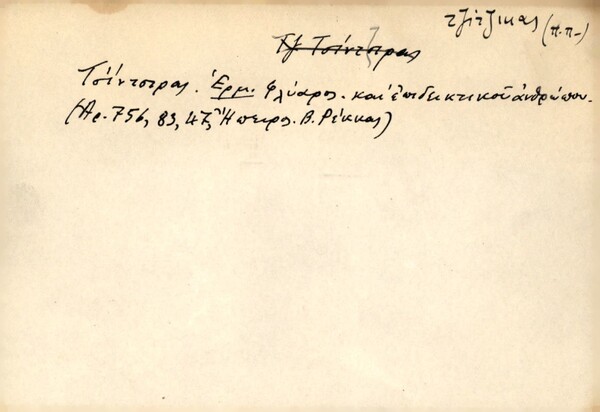 τζίτζικας (π.π-)
Τζ Τσίντσιρας
Τσίντσιρας. Ερμ. Φλύαρος. και επιδεικτικού ανθρώπου.
(Αρ. 756, 83, 47, Ήπειρος. Β. Ρέκκας)